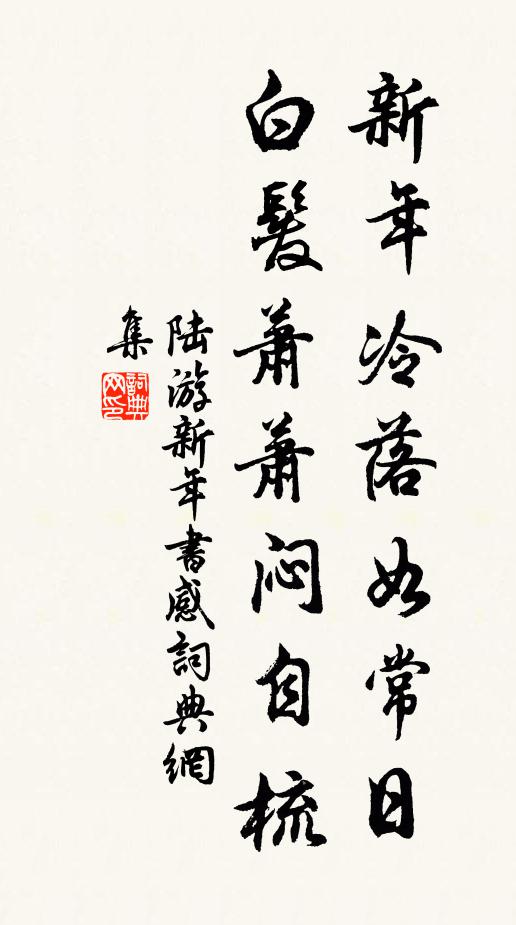 新年冷落如常日
白髮蕭蕭悶自梳
陸游新年書感詞典網
集
詞典
网印